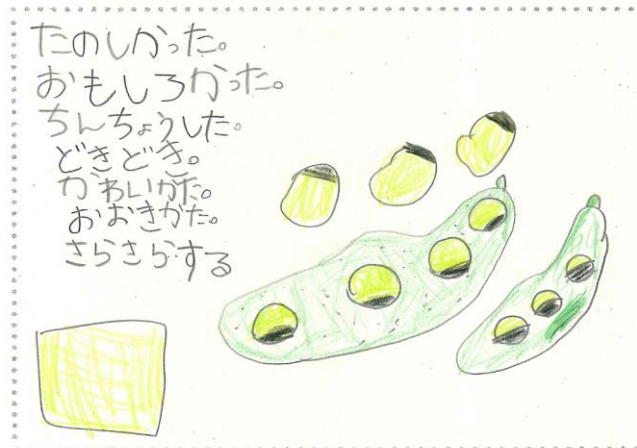 たのしかった。
おもしろかった。
ちんちょうした。
どきどき。
かわいかた。
おおきかた。
さらさらする